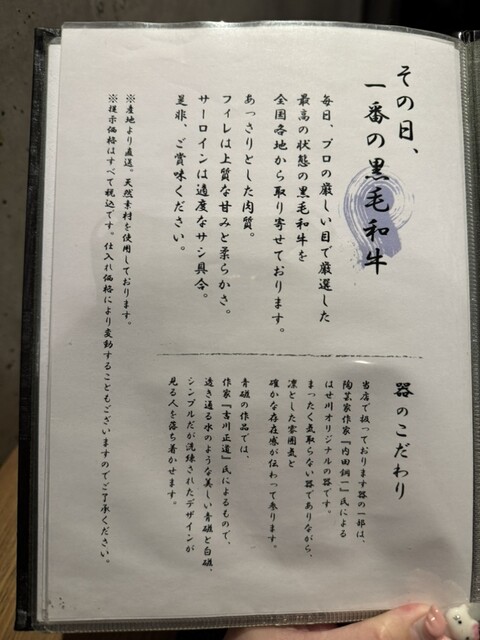 その日、
一番の黒毛和牛
毎日、プロの厳しい目で厳選した
最高の状態の黒毛和牛を
全国各地から取り寄せております。
あっさりとした肉質。
フィレは上質な甘みと柔らかさ。
サーロインは適度なサシ具合。
是非、ご賞味ください。
器のこだわり
当店で扱っております器の一部は、
陶芸家作家『内田鋼一』氏による
はせ川オリジナルの器です。
まったく気取らない器でありながら、
凛とした雰囲気と
確かな存在感が伝わって参ります。
青磁の作品では、
作家『吉川正道』氏によるもので、
透き通る水のような美しい青磁と白磁、
シンプルだが洗練されたデザインが
見る人を落ち着かせます。
※産地より直送。天然素材を使用しております。
※提示価格はすべて税込です。仕入れ価格により変動することもございますのでご了承ください。